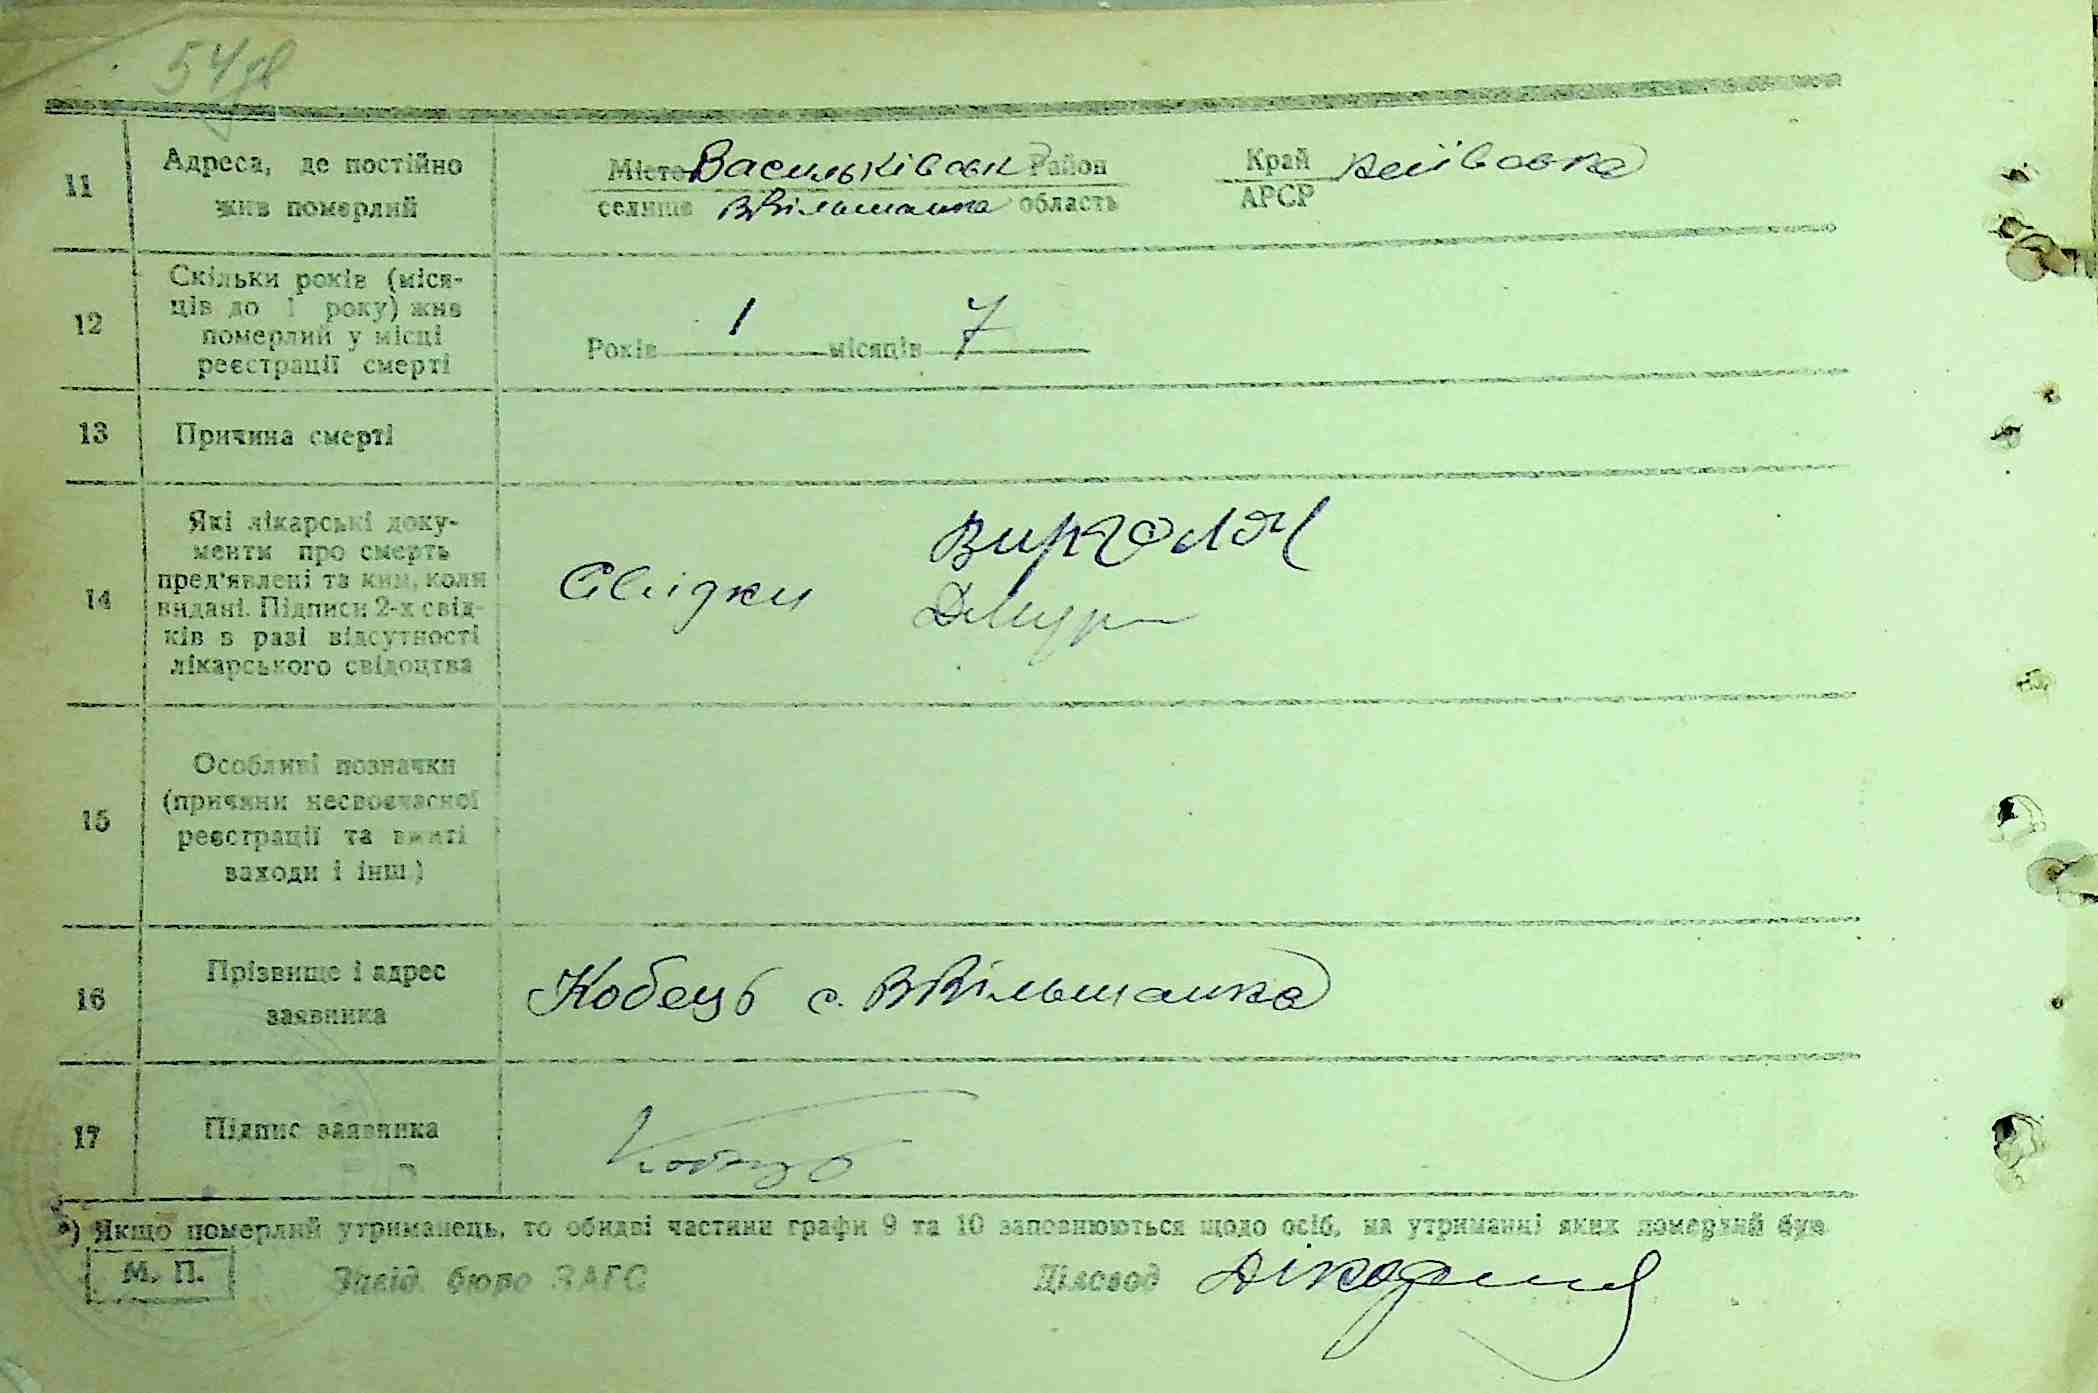 54
11
Адреса, де постійно
жив померлий
Місто Васильківськ Район
селище ВВільшанка область
Край Київська
АРСР
12
Скільки років (міся-
ців до 1 року) жив
померлий у місці
реєстрації смерті
Років 1 місяців 7
13
Причина смерті
14
Які лікарські доку-
менти про смерть
пред'явлені та ким, коли
видані. Підписи 2-х свід-
ків в разі відсутності
лікарського свідоцтва
Свідки
15
Особливі позначки
(причини несвоєчасної
реєстрації та вжиті
заходи і інш.)
16
Прізвище і адрес
заявника
Кобець с. ВВільшанка
17
Підпис заявника
Кобець
*) Якщо померлий утриманець, то обидві частини графи 9 та 10 заповнюються щодо осіб, на утриманні яких померлий був
М. П.
Завід. бюро ЗАГС
Діловод